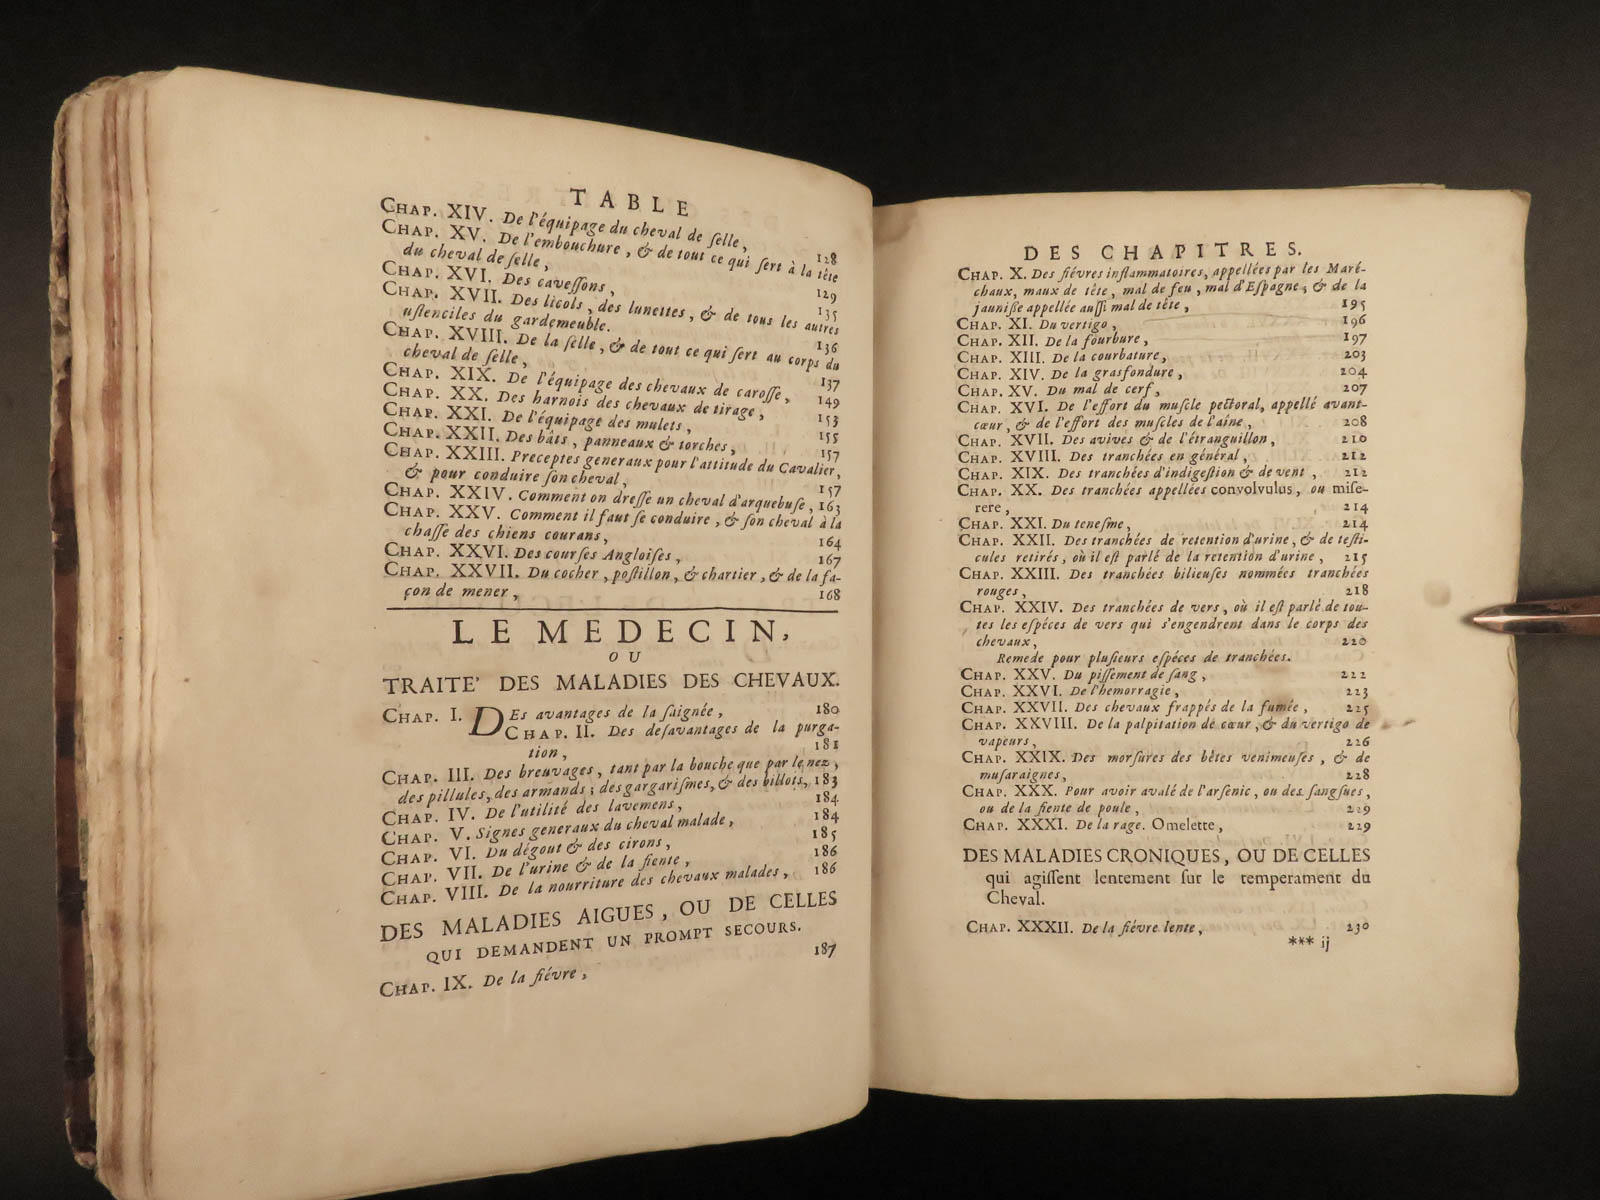 TABLE
CHAP. XIV. De l'équipage du cheval de ſelle, 128
CHAP. XV. De l'embouchure, & de tout ce qui ſert à la tête
du cheval de ſelle, 129
CHAP. XVI. Des caveſſons, 135
CHAP. XVII. Des licols, des lunettes, & de tous les autres
uſtenciles du gardemeuble. 136
CHAP. XVIII. De la ſelle, & de tout ce qui ſert au corps du
cheval de ſelle, 137
CHAP. XIX. De l'équipage des chevaux de caroſſe, 149
CHAP. XX. Des harnois des chevaux de tirage, 153
CHAP. XXI. De l'équipage des mulets, 155
CHAP. XXII. Des bâts, panneaux & torches, 157
CHAP. XXIII. Preceptes generaux pour l'attitude du Cavalier,
& pour conduire ſon cheval, 157
CHAP. XXIV. Comment on dreſſe un cheval d'arquebuſe, 163
CHAP. XXV. Comment il faut ſe conduire, & ſon cheval à la
chaſſe des chiens courans, 164
CHAP. XXVI. Des courſes Angloiſes, 167
CHAP. XXVII. Du cocher, poſtillon, & chartier, & de la fa-
çon de mener, 168
LE MEDECIN,
OU
TRAITE' DES MALADIES DES CHEVAUX.
CHAP. I. DEs avantages de la ſaignée, 180
CHAP. II. Des deſavantages de la purga-
tion, 181
CHAP. III. Des breuvages, tant par la bouche que par le nez,
des pillules, des armands; des gargariſmes, & des billots, 183
CHAP. IV. De l'utilité des lavemens, 184
CHAP. V. Signes generaux du cheval malade, 184
CHAP. VI. Du dégout & des cirons, 185
CHAP. VII. De l'urine & de la fiente, 186
CHAP. VIII. De la nourriture des chevaux malades, 186
DES MALADIES AIGUES, OU DE CELLES
QUI DEMANDENT UN PROMPT SECOURS.
CHAP. IX. De la fiévre, 187
DES CHAPITRES.
CHAP. X. Des fiévres inflammatoires, appellées par les Maré-
chaux, maux de tête, mal de feu, mal d'Eſpagne; & de la
jauniſſe appellée auſſi mal de tête, 195
CHAP. XI. Du vertigo, 196
CHAP. XII. De la fourbure, 197
CHAP. XIII. De la courbature, 203
CHAP. XIV. De la grasfondure, 204
CHAP. XV. Du mal de cerf, 207
CHAP. XVI. De l'effort du muſcle pectoral, appellé avant-
cœur, & de l'effort des muſcles de l'aîne, 208
CHAP. XVII. Des avives & de l'étranguillon, 210
CHAP. XVIII. Des tranchées en général, 212
CHAP. XIX. Des tranchées d'indigeſtion & de vent, 212
CHAP. XX. Des tranchées appellées convolvulus, ou miſe-
rere, 214
CHAP. XXI. Du teneſme, 214
CHAP. XXII. Des tranchées de retention d'urine, & de teſti-
cules retirés, où il eſt parlé de la retention d'urine, 215
CHAP. XXIII. Des tranchées bilieuſes nommées tranchées
rouges, 218
CHAP. XXIV. Des tranchées de vers, où il eſt parlé de tou-
tes les eſpéces de vers qui s'engendrent dans le corps des
chevaux, 220
Remede pour pluſieurs eſpéces de tranchées.
CHAP. XXV. Du piſſement de ſang, 222
CHAP. XXVI. De l'hemorragie, 223
CHAP. XXVII. Des chevaux frappés de la fumée, 225
CHAP. XXVIII. De la palpitation de cœur, & du vertigo de
vapeurs, 226
CHAP. XXIX. Des morſures des bêtes venimeuſes, & de
muſaraignes, 228
CHAP. XXX. Pour avoir avalé de l'arſenic, ou des ſangſues,
ou de la fiente de poule, 229
CHAP. XXXI. De la rage. Omelette, 229
DES MALADIES CRONIQUES, OU DE CELLES
qui agiſſent lentement ſur le temperament du
Cheval.
CHAP. XXXII. De la fiévre lente, 230
*** ij